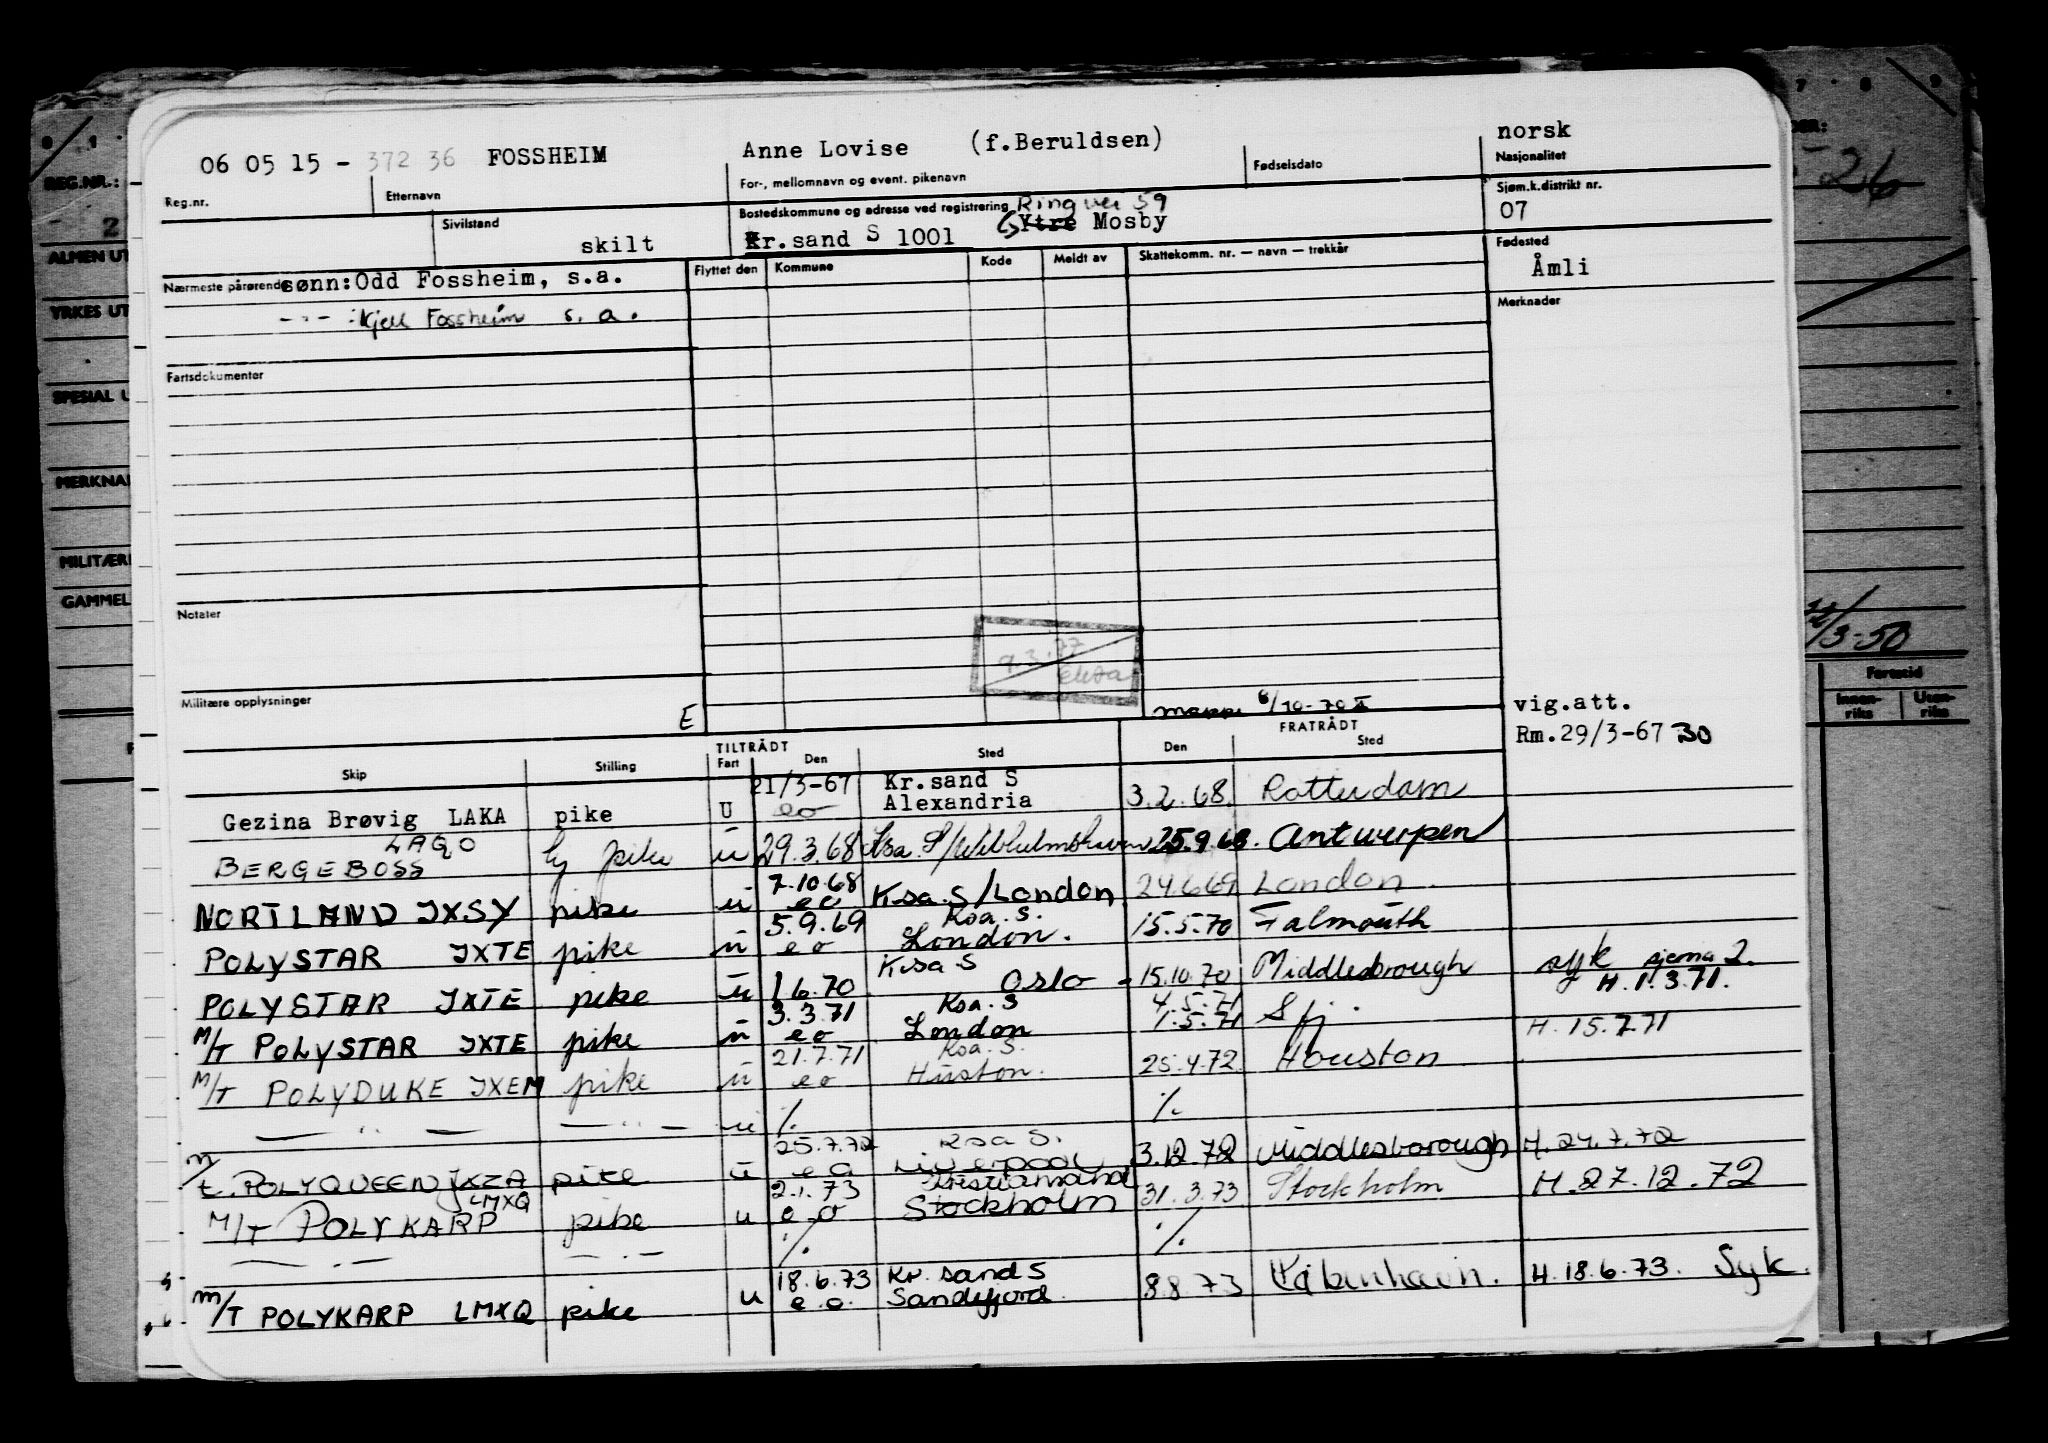 06 05 15 - 372 36 FOSSHEIM Anne Lovise (f.Beruldsen) norsk
Reg.nr. Etternavn For-, mellomnavn og event. pikenavn Fødselsdato Nasjonalitet
Sivilstand Bostedskommune og adresse ved registrering Ringvei 59 Sjøm.k.distrikt nr.
skilt Kr.sand S 1001 Ytre Mosby 07
Nærmeste pårørende sønn:Odd Fossheim, s.a. Flyttet den Kommune Kode Meldt av Skattekomm. nr. — navn — trekkår Fødested
Åmli
- " - : Kjell Fossheim s. a. Merknader
Fartsdokumenter
Notater
9.3.77
Militære opplysninger E 6/10-70 vig.att.
Rm.29/3-67 30
TILTRÅDT FRATRÅDT
Skip Stilling Fart Den Sted Den Sted
21/3-67 Kr.sand S
Gezina Brøvig LAKA pike U eo Alexandria 3.2.68. Rotterdam
LAQO
BERGEBOSS pike u 29.3.68 Ksa. S/Wilhelmshaven 25.9.68. Antwerpen
7.10.68
NORTLAND JXSY pike u eo Ksa. S/London 24.6.69 London
5.9.69 Ksa. S.
POLYSTAR JXTE pike u eo London. 15.5.70 Falmouth
Ksa S
POLYSTAR JXTE pike u 1.6.70 Oslo - 15.10.70 Middlesbrough syk sjema 2.
H. 1.3.71.
3.3.71 Ksa. S 4.5.71
M/T POLYSTAR JXTE pike u eo London 1.5.71 Sfj. H. 15.7.71
21.7.71 Ksa. S.
M/T POLYDUKE JXEM pike u eo Huston. 25.4.72 Houston
— " — — " — u % %
25.7.72 Ksa S.
m/t. POLYQUEEN JXZA pike u eo Liverpool 3.12.72 Middlesborough H. 24.7.72
LMXQ 2.1.73 Kristiansand
M/T POLYKARP pike u eo Stockholm 31.3.73 Stockholm H. 27.12.72
— " — — " — % %
18.6.73 Kr. sand S
m/T POLYKARP LMXQ pike u e.o. Sandefjord. 8.8.73 København. H. 18.6.73. Syk.
REG.NR.:
2 26
ALMEN UT
YRKES UT
SPESIAL U
MERKNA
MILITÆR
GAMMEL
/3-50
Faresid
Innen-riks Uten-riks